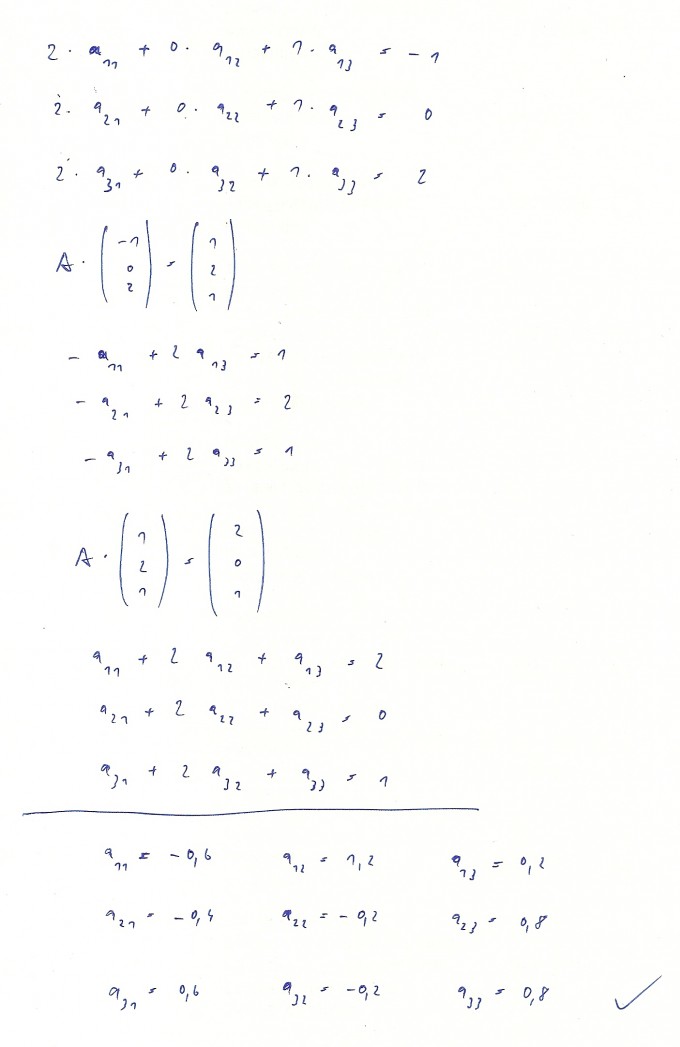 2 · a₁₁ + 0 · a₁₂ + 1 · a₁₃ = -1
2 · a₂₁ + 0 · a₂₂ + 1 · a₂₃ = 0
2 · a₃₁ + 0 · a₃₂ + 1 · a₃₃ = 2
A · (-1 0 2) = (1 2 1)
- a₁₁ + 2 a₁₃ = 1
- a₂₁ + 2 a₂₃ = 2
- a₃₁ + 2 a₃₃ = 1
A · (1 2 1) = (2 0 1)
a₁₁ + 2 a₁₂ + a₁₃ = 2
a₂₁ + 2 a₂₂ + a₂₃ = 0
a₃₁ + 2 a₃₂ + a₃₃ = 1
a₁₁ = -0,6 a₁₂ = 1,2 a₁₃ = 0,2
a₂₁ = -0,4 a₂₂ = -0,2 a₂₃ = 0,8
a₃₁ = 0,6 a₃₂ = -0,2 a₃₃ = 0,8 ✓